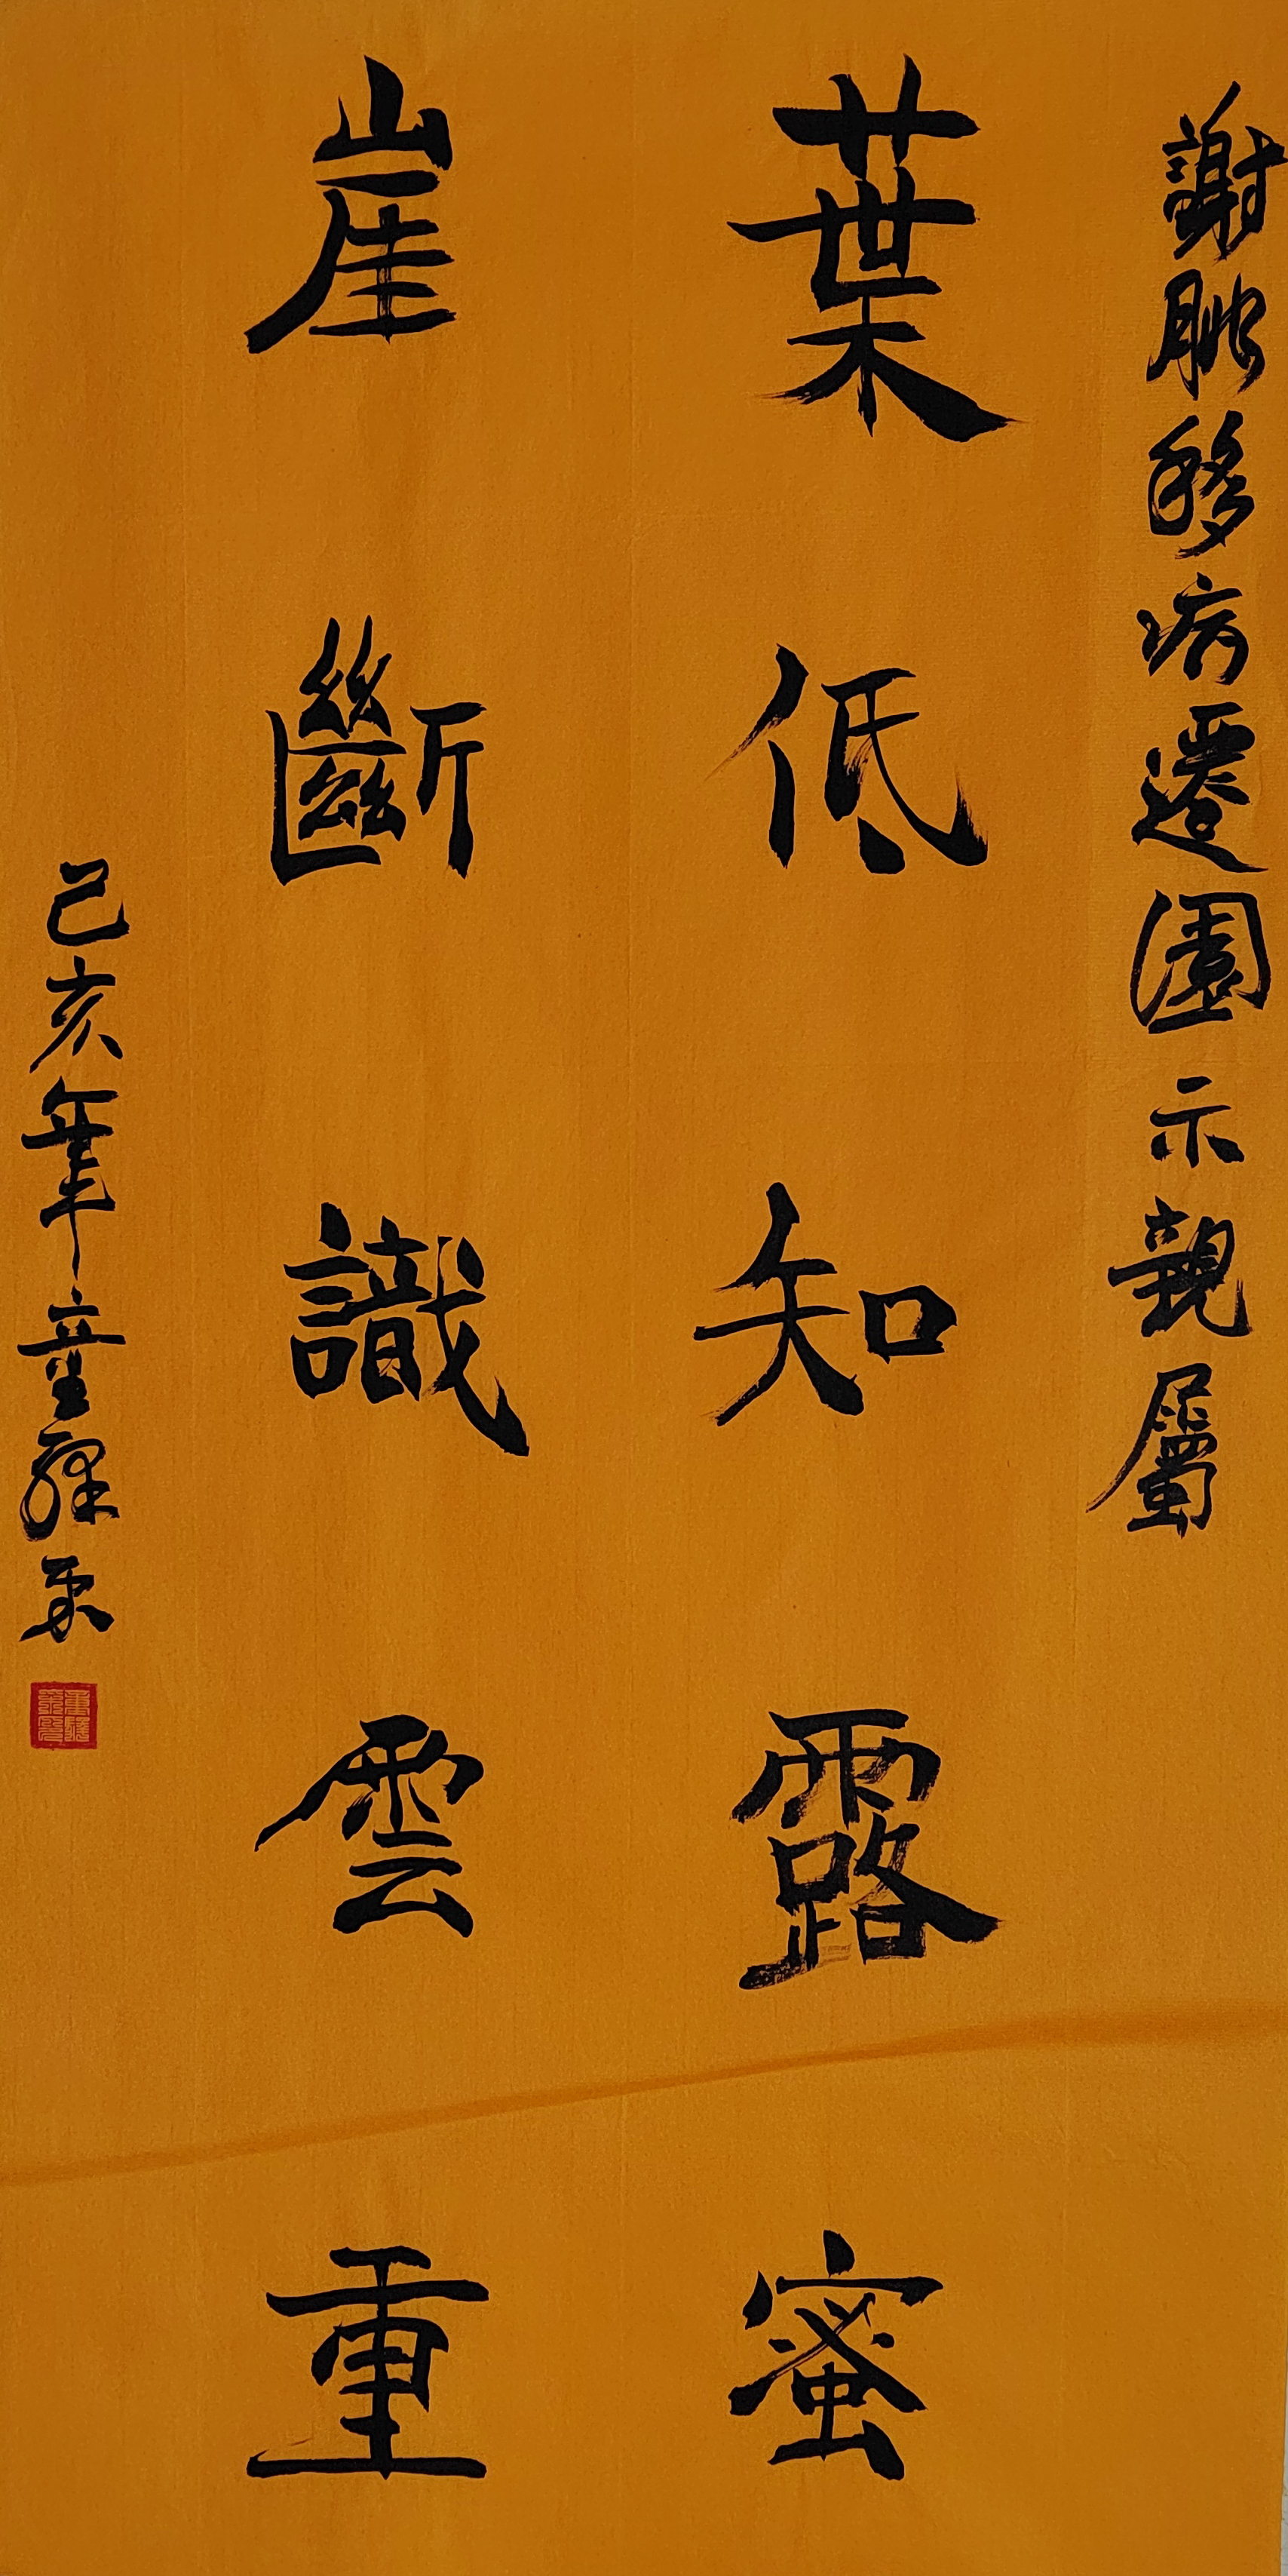 謝朓移病還園示親屬
葉低知露蜜
崖斷識雲重
己亥年童